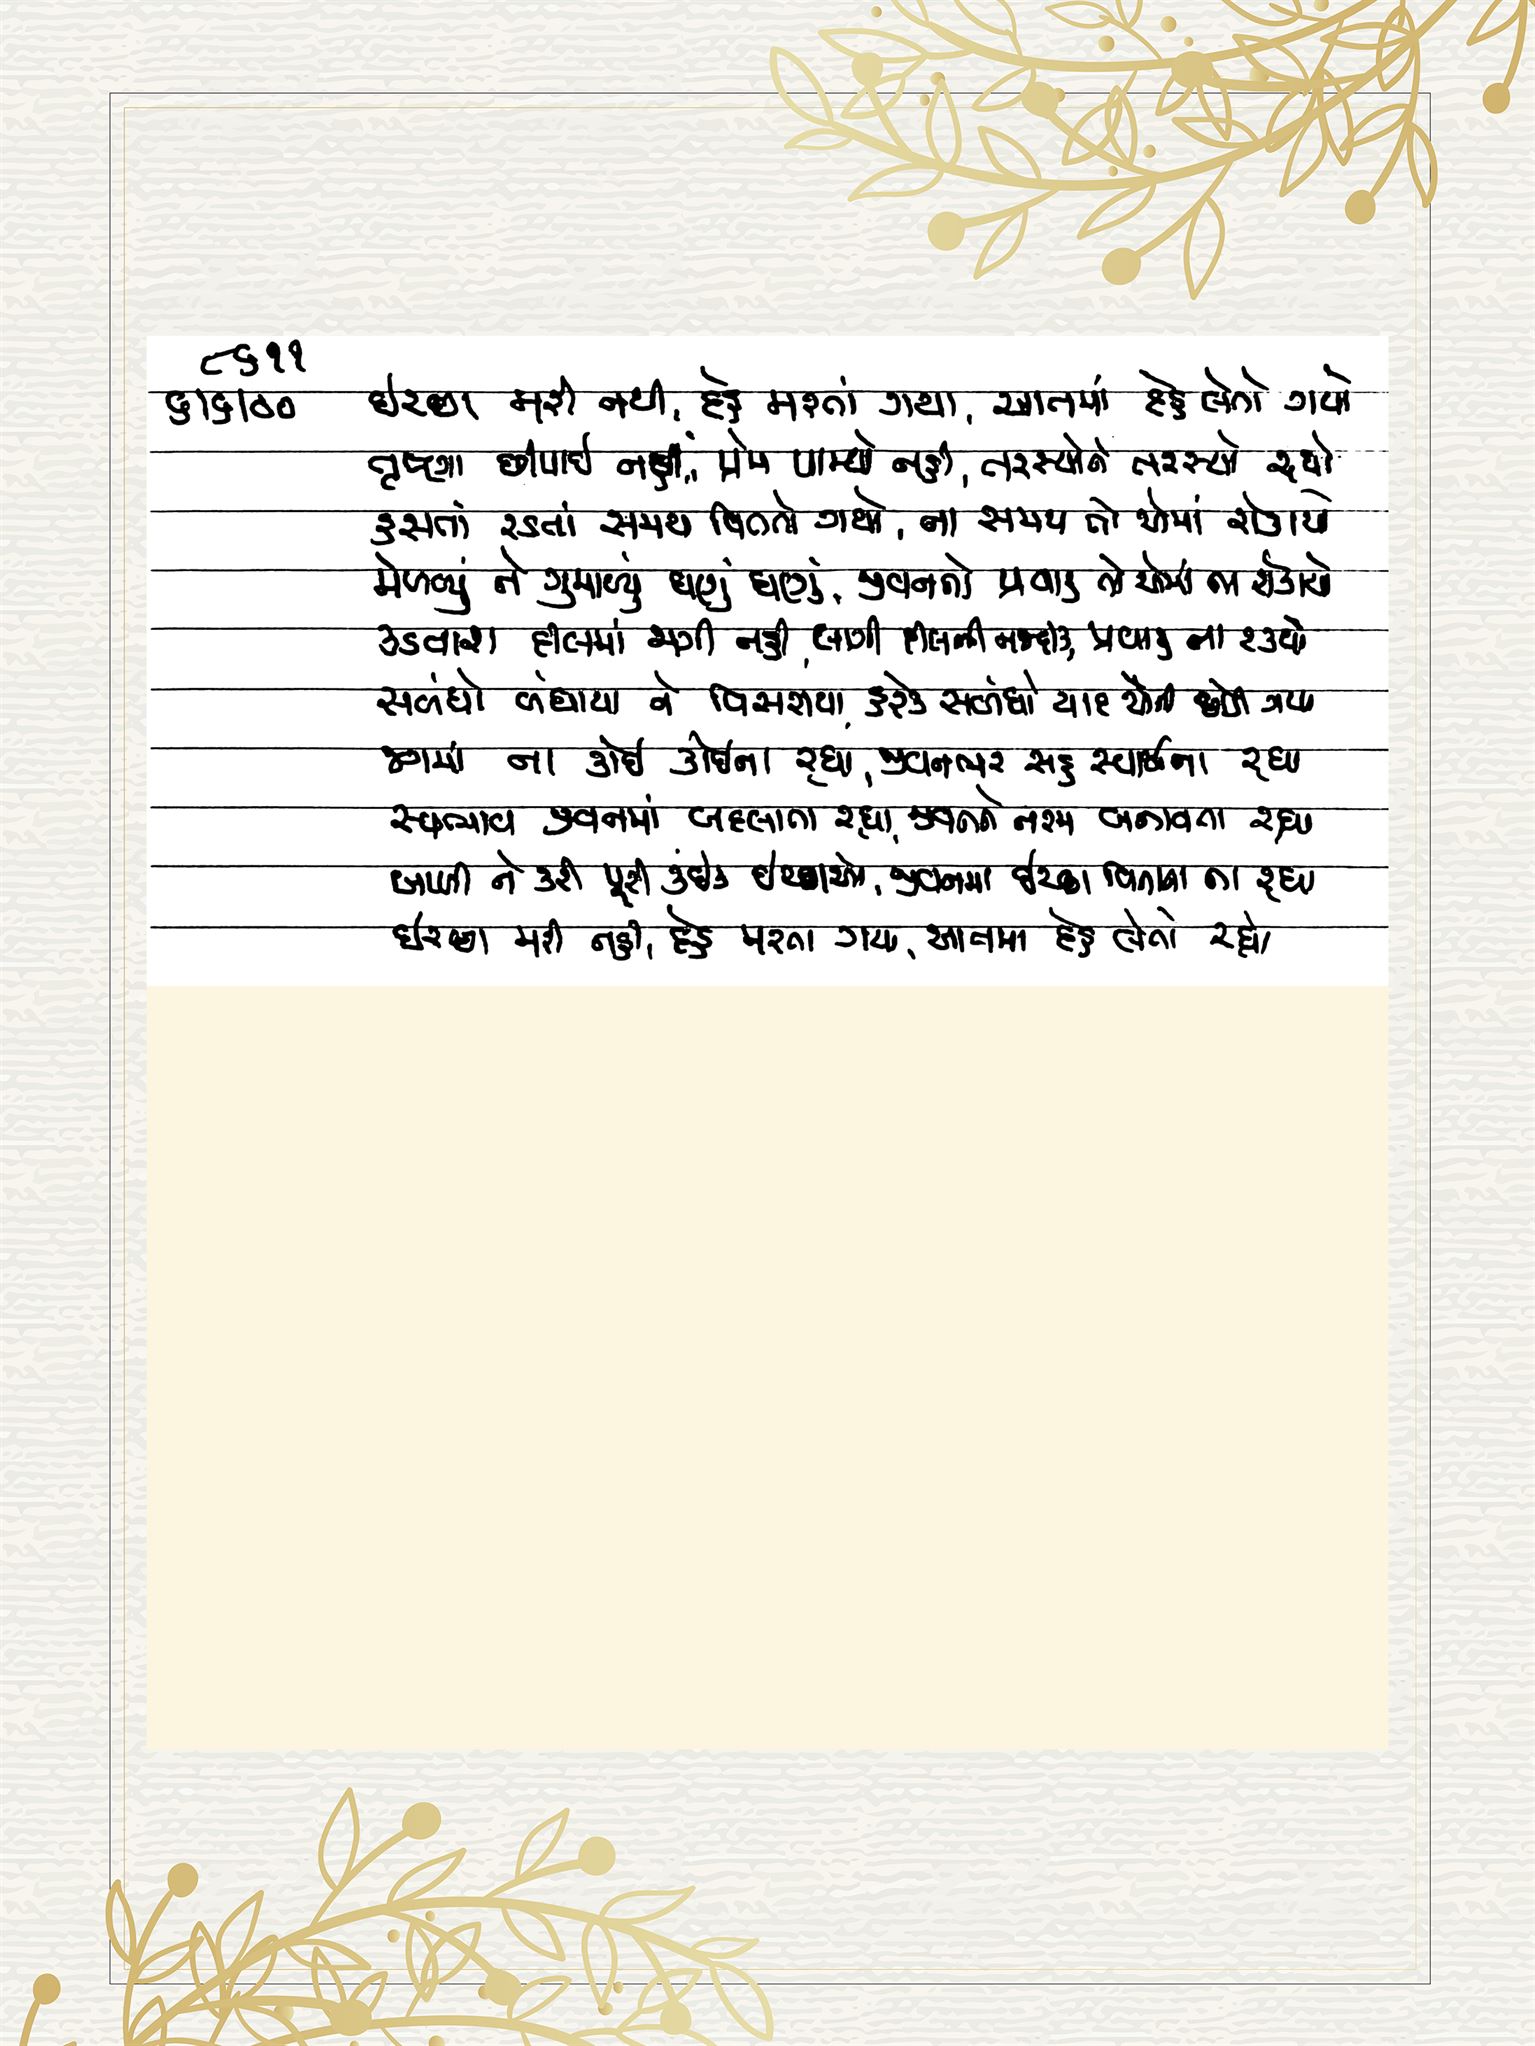 ૮૬૧૧
૬/૬/૦૦ ઇચ્છા મરી નથી, દેહ મરતાં ગયા, આતમાં દેહ લેતો ગયો
તૃષ્ણા છીપાઈ નહીં, પ્રેમ પામ્યો નહી, તરસ્યોને તરસ્યો રહ્યો
હસતાં રડતાં સમય વિતતો ગયો, ના સમય તો એમાં રોકાયો
મેળવ્યું ને ગુમાવ્યું ઘણું ઘણું, જીવનનો પ્રવાહ તો એમાં ના રોકાયો
કડવાશ દીલમાં જાગી નહી, દીલની નજદીક, પ્રવાહ ના રકયો
સબંધો બંધાયા ને વિસરાયા, હરેક સબંધો યાદ એની છોડી ગયા
જગમાં ના કોઈ કોઈના રહ્યા, જીવનભર સહુ સ્વાર્થના રહ્યા
સ્વભાવ જીવનમાં બદલાતા રહ્યા, જીવનને નરમ બનાવતા રહ્યા
ને કરી પૂરી કંઈક ઇચ્છાઓ, જીવનમાં ઇચ્છા વિનાના ના રહ્યા
ઇચ્છા મરી નહી, દેહ મરતા ગયા, આતમા દેહ લેતો રહ્યો